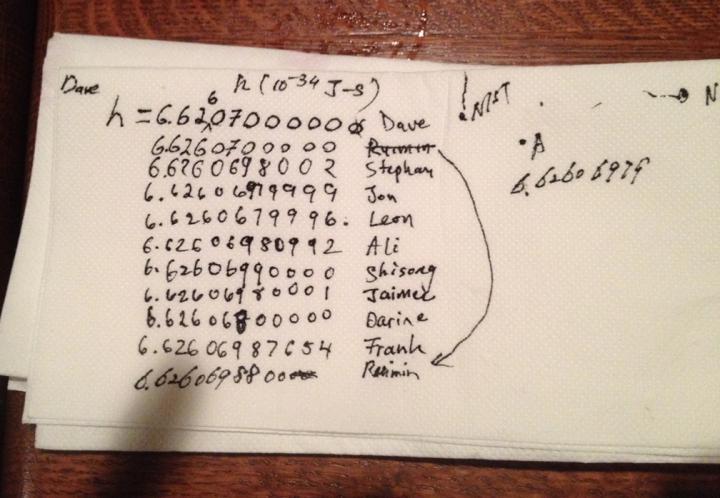 Dave
h (10-34 J-s)
h = 6.6260700000 Dave
6.6260700000 Ruimin
6.6260698002 Stephan
6.6260697999 Jon
6.6260679996. Leon
6.6260698099 2 Ali
6.6260699000 0 Shisong
6.6260698000 1 Jaimec
6.6260680000 0 Darine
6.62606987654 Frank
6.6260698800 Ruimin
NIST
N
A
6.62606979